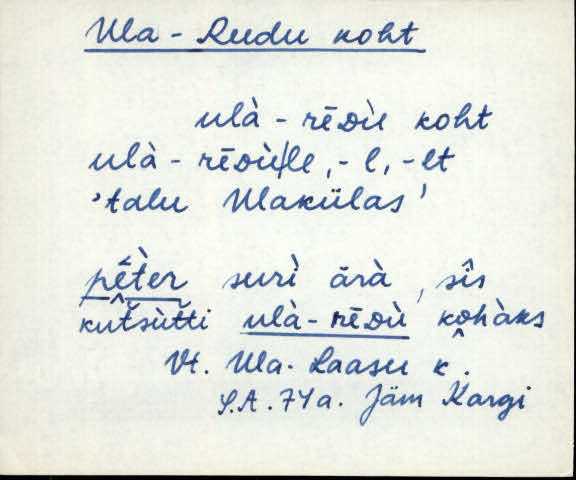 Ula - Reedu koht
ulà - rēᴅù koht
ulà - rēᴅù|le, -l, -lt
'talu Ulakülas'
pḗ̀tèr surì ārà, sîs
kutšùtti ulà-rēᴅù kohàks
Vt. Ula-Laasu k.
S.A. 71a. Jäm Kargi